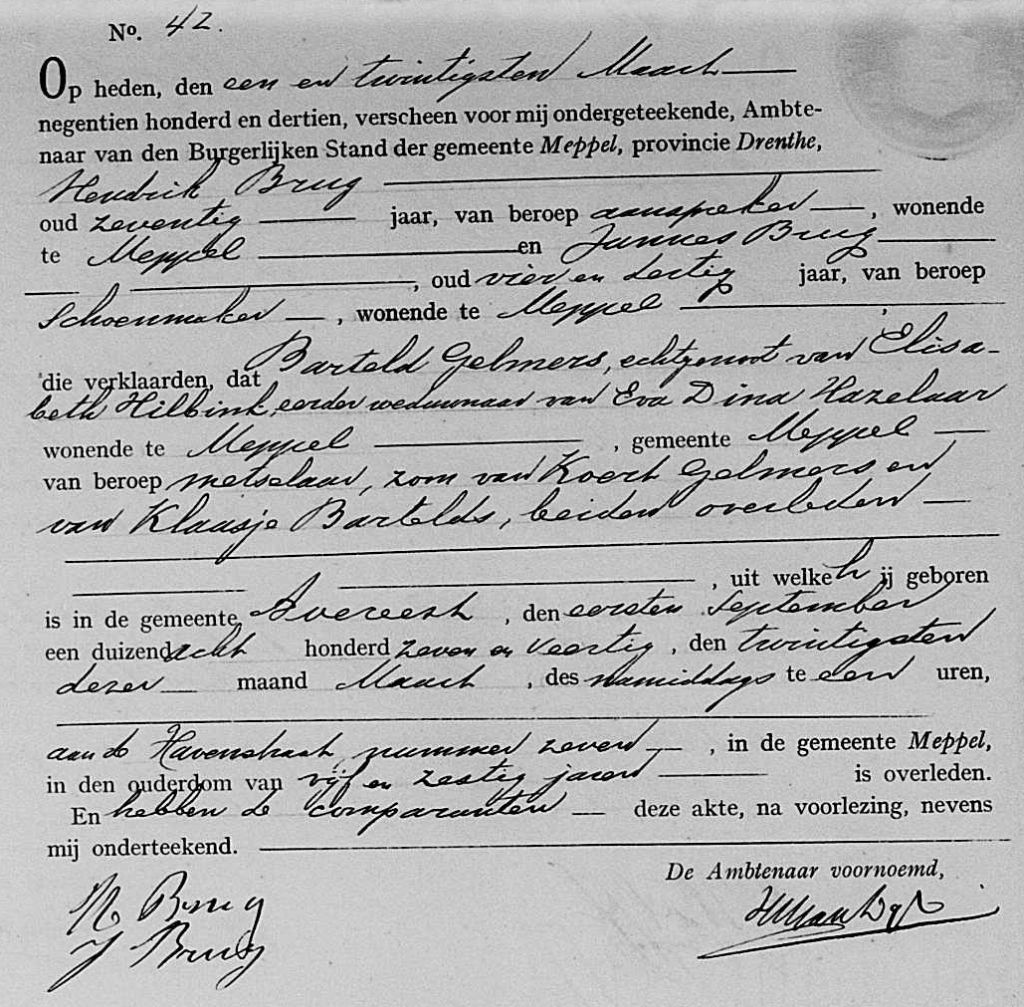 No. 42.
Op heden, den een en twintigsten Maart
negentien honderd en dertien, verscheen voor mij ondergeteekende, Ambte-
naar van den Burgerlijken Stand der gemeente Meppel, provincie Drenthe,
Hendrik Brug
oud zeventig jaar, van beroep aanspreker, wonende
te Meppel en Jannes Brug
, oud vier en dertig jaar, van beroep
Schoenmaker, wonende te Meppel
die verklaarden, dat Barteld Gelmers, echtgenoot van Elisa-
beth Hilbink, eerder weduwnaar van Eva Dina Hazelaar
wonende te Meppel, gemeente Meppel
van beroep metselaar, zoon van Koert Gelmers en
van Klaasje Bartelds, beiden overleden
, uit welke hij geboren
is in de gemeente Avereest, den eersten September
een duizend acht honderd zeven en veertig, den twintigsten
dezer maand Maart, des namiddags te een uren,
aan de Havenstraat, nummer zeven, in de gemeente Meppel,
in den ouderdom van vijf en zestig jaren is overleden.
En hebben de comparanten deze akte, na voorlezing, nevens
mij onderteekend.
De Ambtenaar voornoemd,
H Brug
J Brug